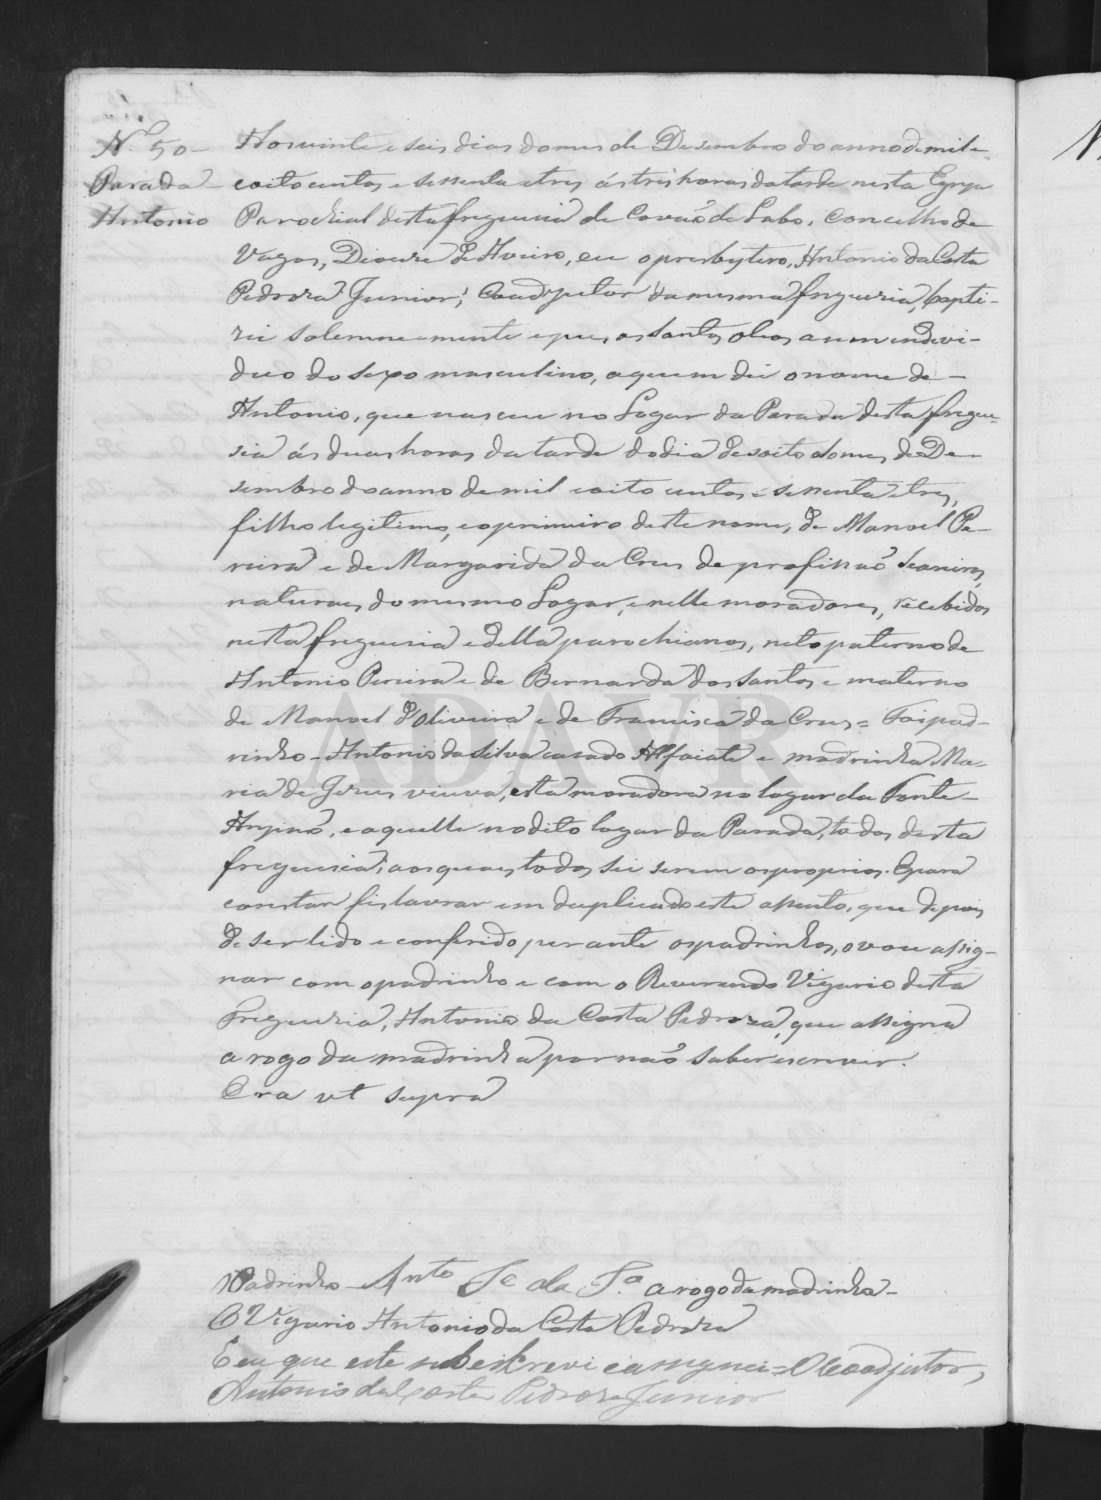 Nº 50-
Parada-
Antonio
Aos vinte e seis dias do mes de Desembro do anno de mil e
coito centos e sessenta e tres ás tres horas da tarde nesta Egreja
Parochial desta freguesia de Covaõ de Lobo, Concelho de
Vagos, Diocese de Aveiro, eu o presbytero, Antonio da Costa
Pedroza Junior, Coadjutor da mesma freguesia, bapti-
zei solemnemente e puz os santos oleos a um endevi-
duo do sexo masculino, a quem dei o nome de -
Antonio, que nasceu no Logar da Parada desta fregue-
sia ás duas horas da tarde do dia desoito do mes de De-
sembro do anno de mil e oito centos e sessenta e tres,
filho legitimo, e o primeiro deste nome, de Manoel Pe-
reira e de Margarida da Crus de profissaõ Seareiros,
naturaes do mesmo Logar, e nelle moradores, recebidos
nesta freguesia e della parochianos, neto paterno de
Antonio Pereira e de Bernarda dos Santos e materno
de Manoel d'Oliveira e de Francisca da Crus = Foi pad-
rinho - Antonio da Silva casado Alfaiate e madrinha Ma-
ria de Jesus viuva, esta moradora no logar da Fonte -
Anjinõ, e aquelle no dito logar da Parada, todos desta
freguesia; aos quaes todos sei serem os proprios. E para
constar fis lavrar em duplicado este assento, que depois
de ser lido e conferido perante os padrinhos, o vou assig-
nar com o padrinho e com o Reverendo Vigario desta
Freguezia, Antonio da Costa Pedroza, que assigna
a rogo da madrinha por naõ saber escrever.
Era ut supra
O Padrinho - Antº Je da Sª a rogo da madrinha -
O Vigario Antonio da Costa Pedroza
E eu que este subescrevi e assignei = O Coadjutor,
Antonio da Costa Pedroza Junior
ADAVR